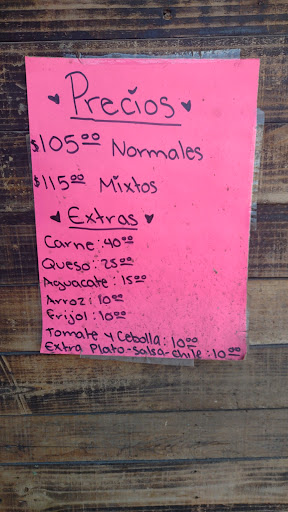 Precios
$105.00 Normales
$115.00 Mixtos
Extras
Carne: 40.00
Queso: 25.00
Aguacate: 15.00
Arroz: 10.00
Frijol: 10.00
Tomate y Cebolla: 10.00
Extra Plato-Salsa-chile: 10.00